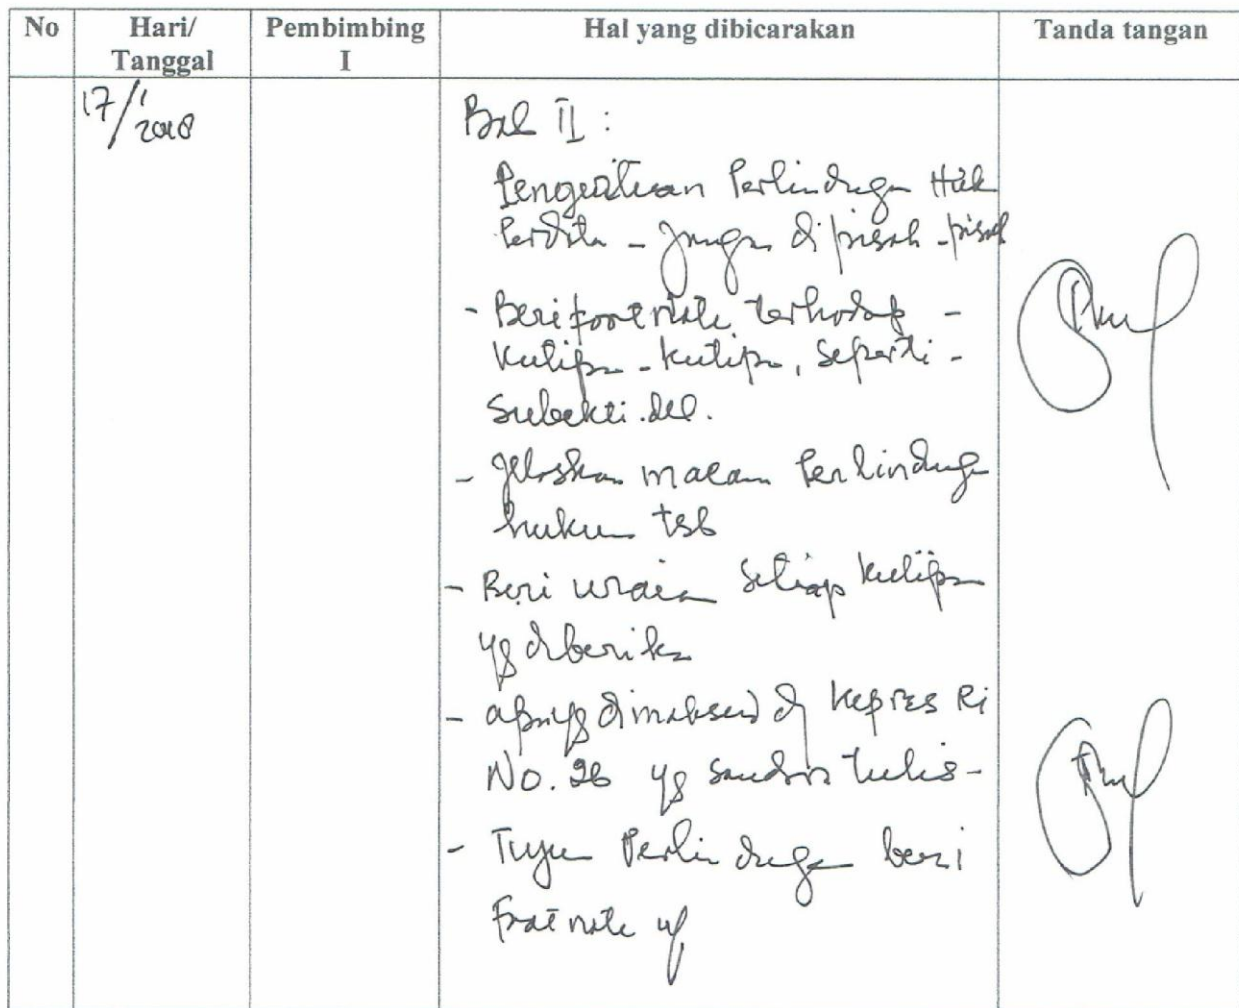 No
Hari/
Tanggal
Pembimbing
I
Hal yang dibicarakan
Tanda tangan
17/1
2018
Bab II :
Pengertian Perlindungan Huk
Perdata - Jangan dipisah-pisah
- Beri footnote terhadap -
kutipan-kutipan, seperti -
Subekti. dll.
- Jelaskan macam Perlindungan
hukum tsb
- Beri uraian setiap kutipan
yg diberikan
- apa yg dimaksud dg Kepres Ri
No. yg saudara tulis -
- Tujuan Perlindungan beri
Footnote